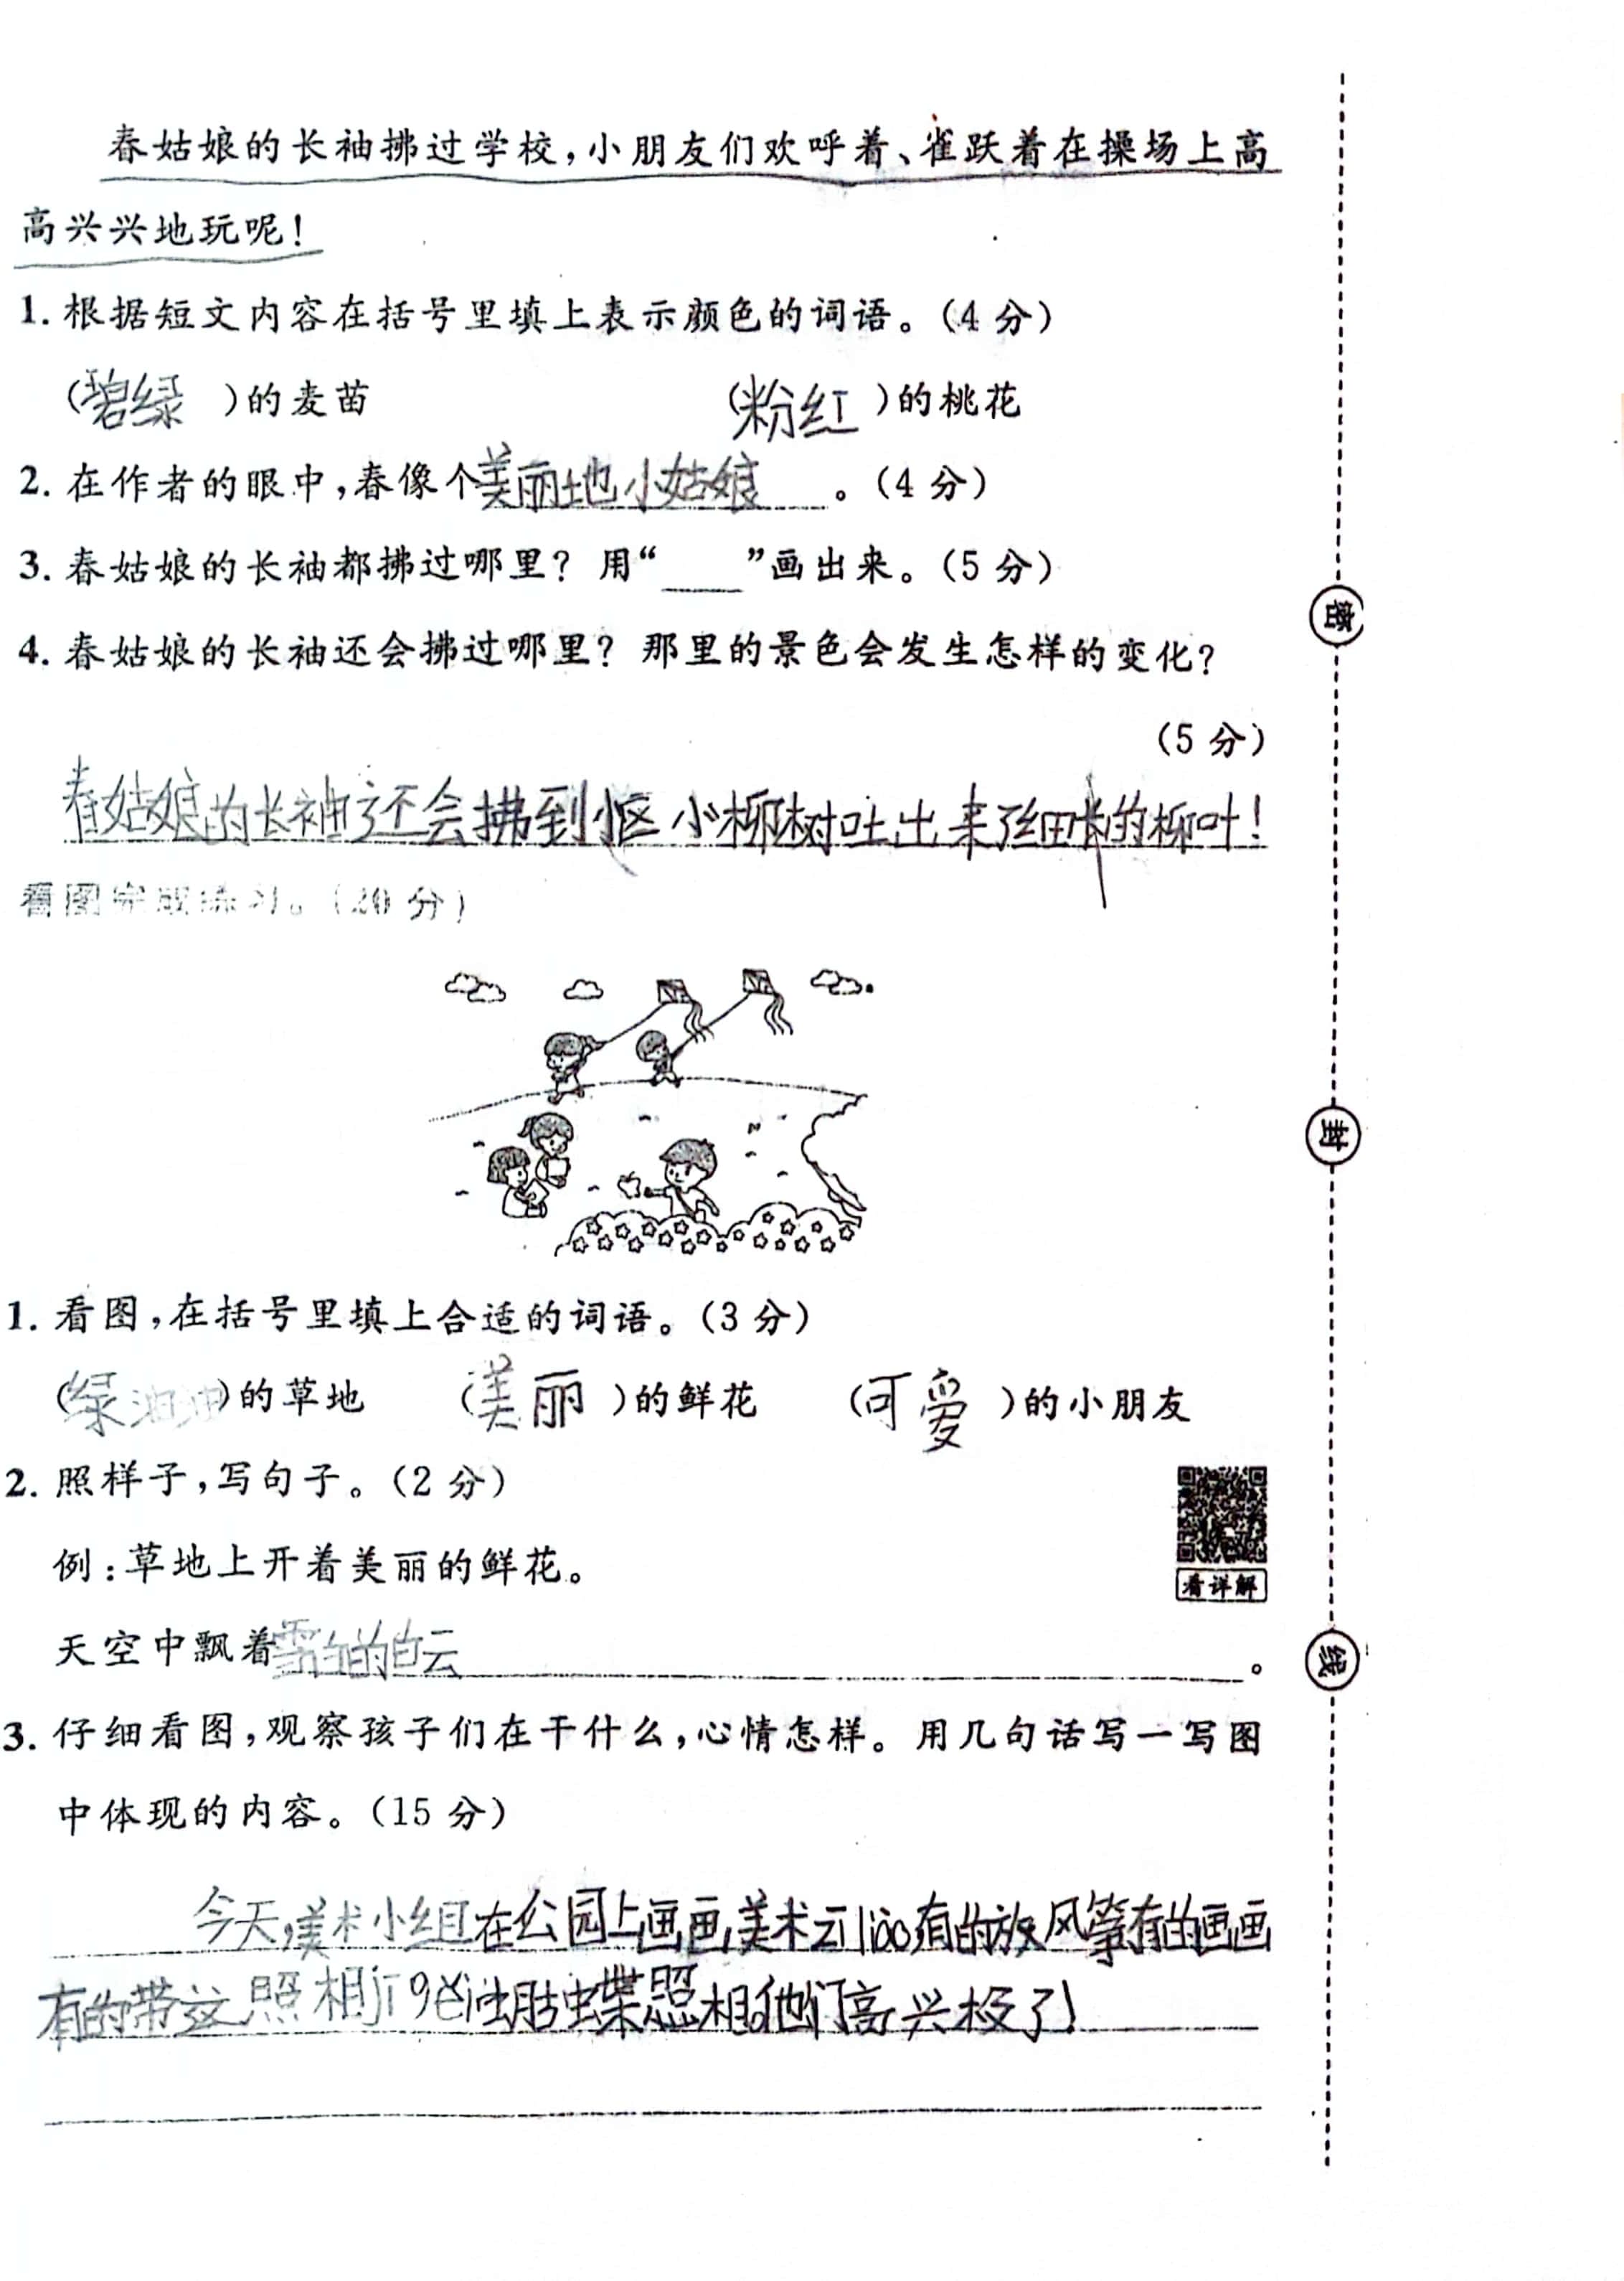 春姑娘的长袖拂过学校,小朋友们欢呼着、雀跃着在操场上高
高兴兴地玩呢!
1. 根据短文内容在括号里填上表示颜色的词语。(4 分)
(碧绿)的麦苗 (粉红)的桃花
2. 在作者的眼中,春像个美丽地小姑娘。(4 分)
3. 春姑娘的长袖都拂过哪里? 用“___”画出来。(5 分)
4. 春姑娘的长袖还会拂过哪里? 那里的景色会发生怎样的变化?
(5 分)
春姑娘的长袖还会拂到小区 小柳树吐出来了细长的柳叶!
看图完成练习。(20 分)
1. 看图,在括号里填上合适的词语。(3 分)
(绿油油)的草地 (美丽)的鲜花 (可爱)的小朋友
2. 照样子,写句子。(2 分)
例:草地上开着美丽的鲜花。
看详解
天空中飘着雪白的白云。
3. 仔细看图,观察孩子们在干什么,心情怎样。用几句话写一写图
中体现的内容。(15 分)
今天,美术小组在公园上画画,美术 有的放风筝有的画画
有的带这照相 蝴蝶照相他们高兴极了!
密
封
线